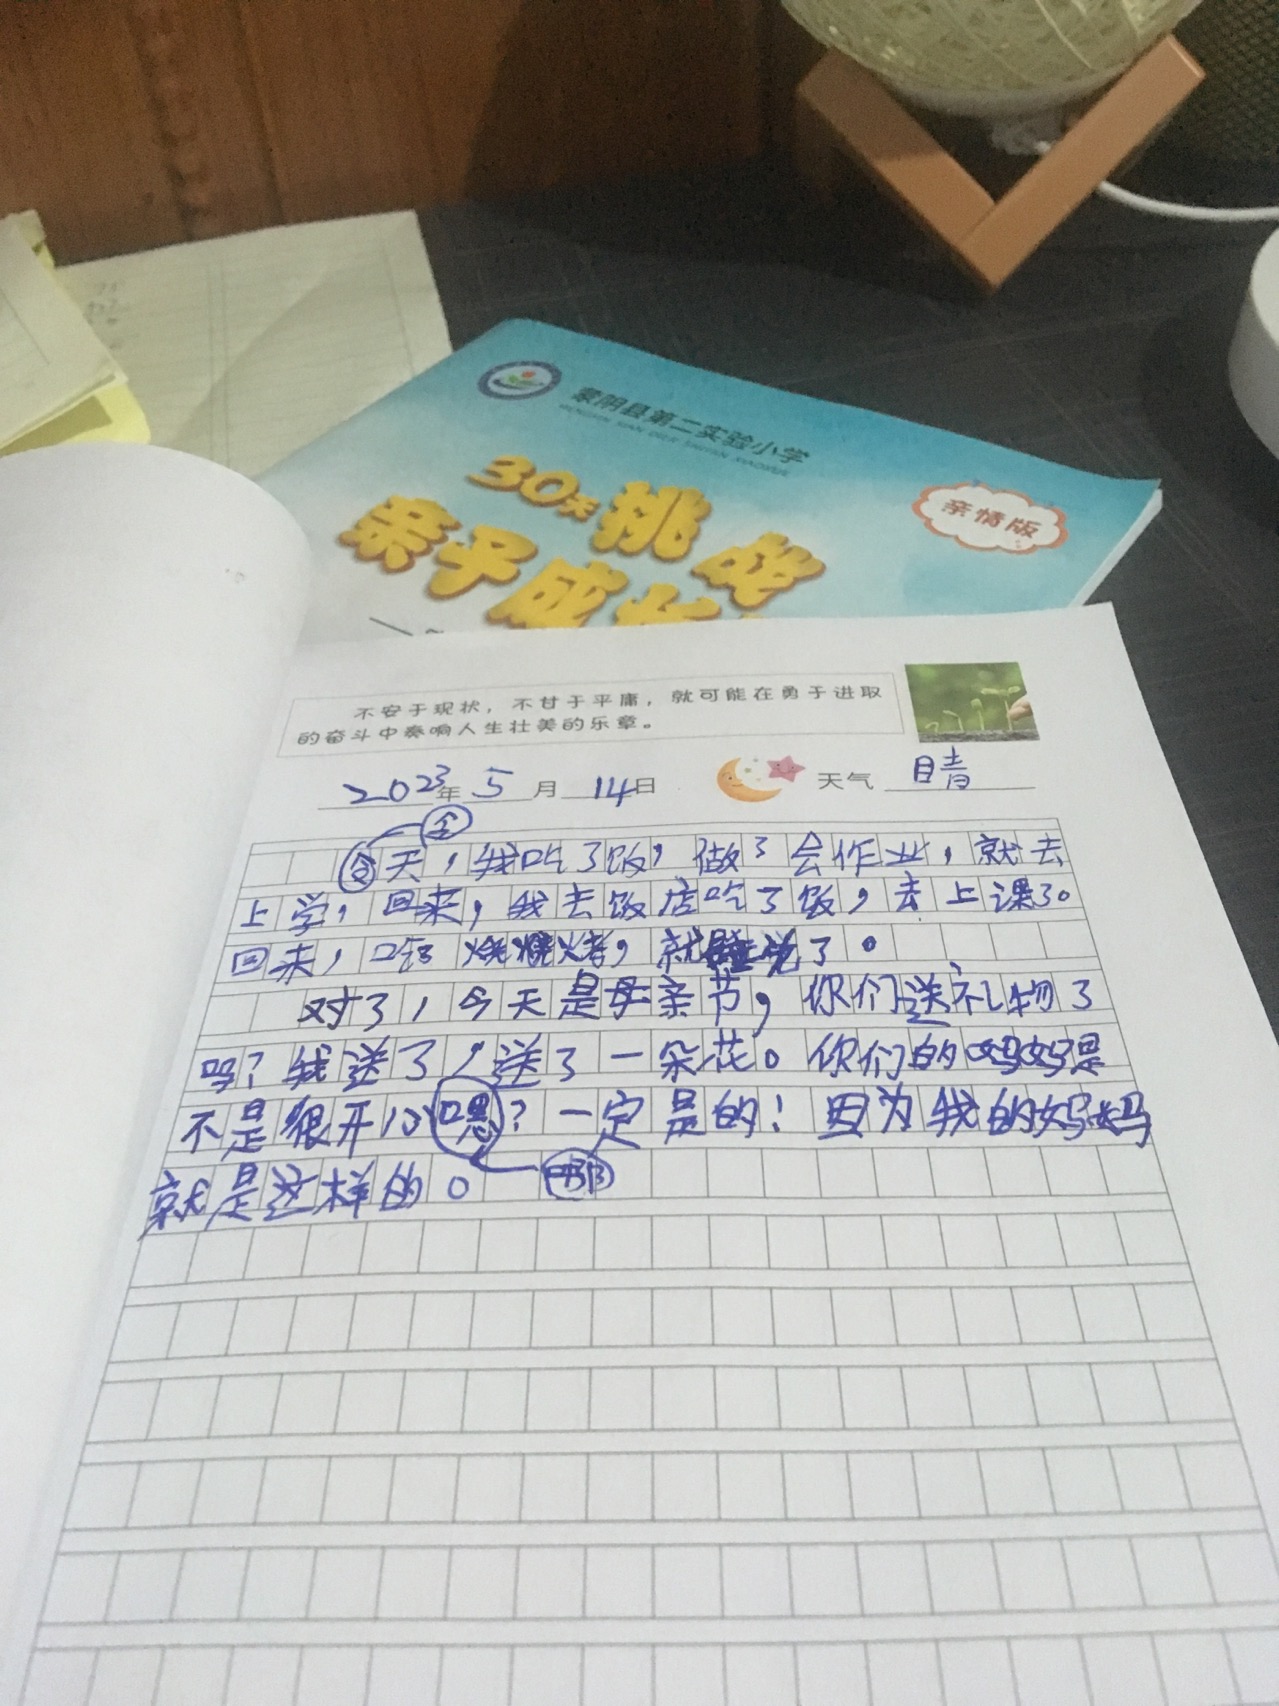 蒙阴县第二实验小学
30天挑战
亲子成长
亲情版
不安于现状，不甘于平庸，就可能在勇于进取
的奋斗中奏响人生壮美的乐章。
2023年 5月 14日 天气 晴
今
天，我吃了饭，做了会作业，就去
上学，回来，我去饭店吃了饭，去上课30
回来，吃 烧烤，就睡觉了。
对了，今天是母亲节，你们送礼物了
吗？我送了，送了一朵花。你们的妈妈是
不是很开心嗯？一定是的！因为我的妈妈
就是这样的。